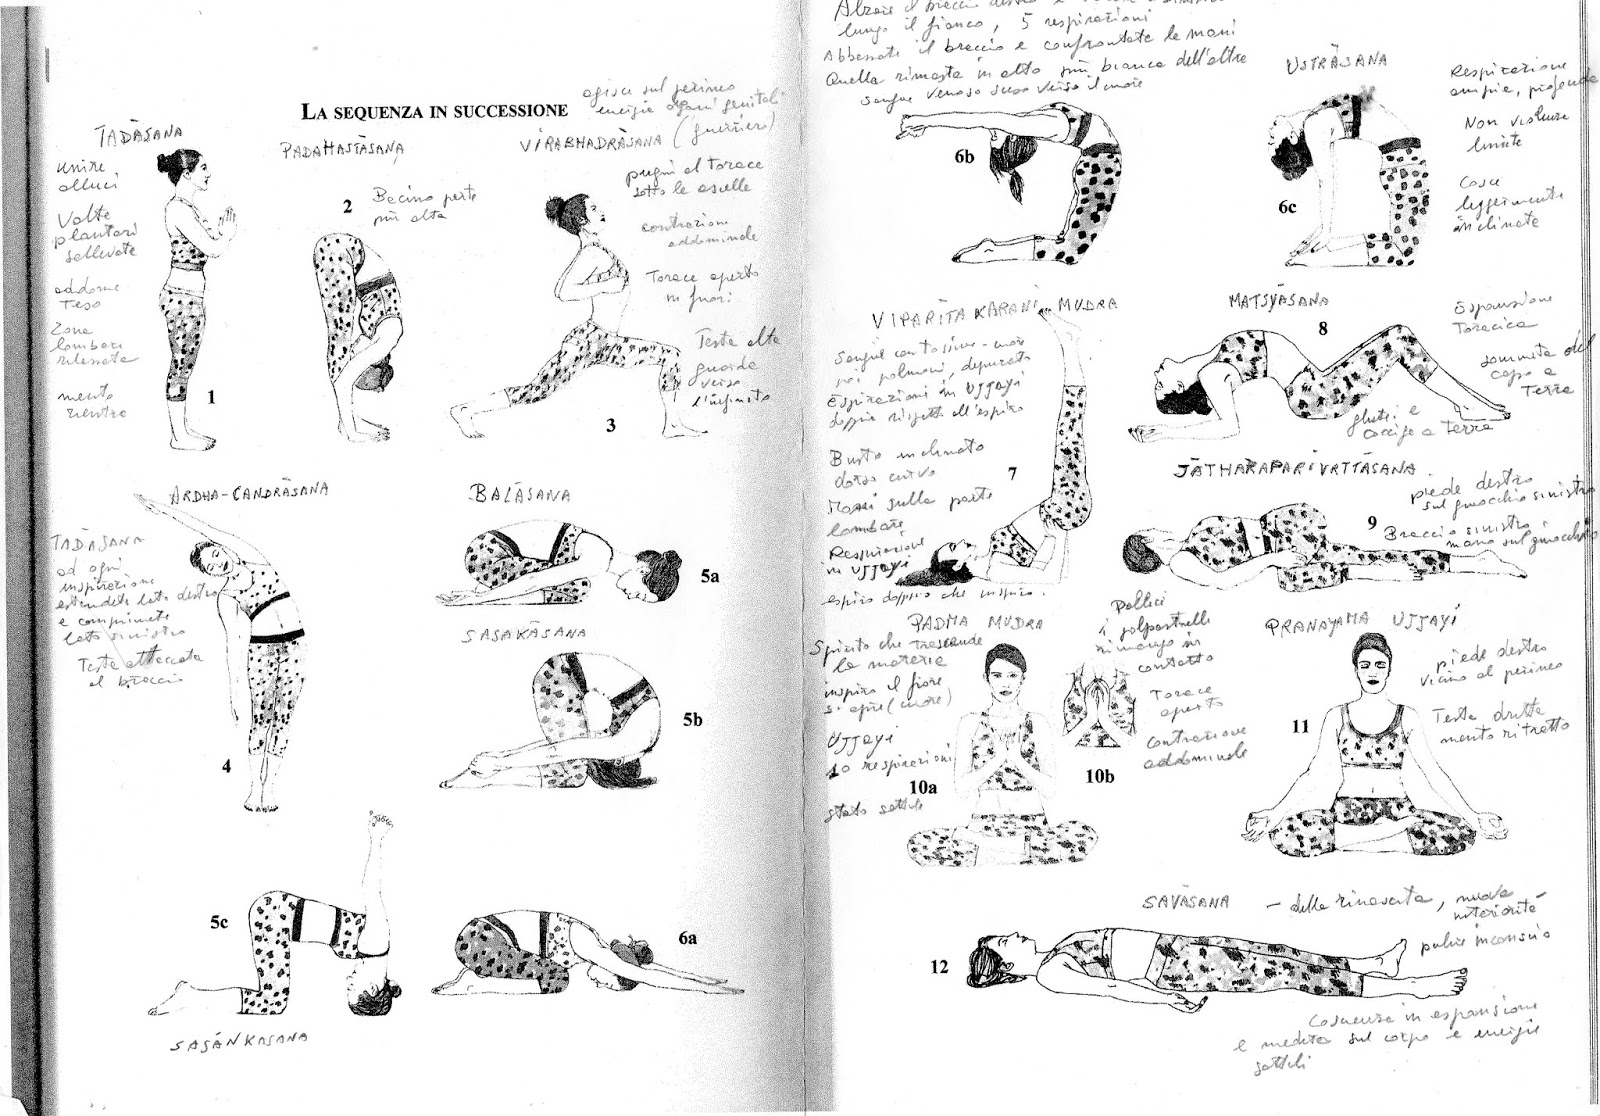 LA SEQUENZA IN SUCCESSIONE
agisce sul perineo
energia organi genitali
TADĀSANA
unire
alluci
Volte
plantari
sollevate
addome
Teso
Zone
lombari
rilassata
mento
rientra
1
PADAHASTĀSANA
2
Bacino parte
più alta
VIRABHADRĀSANA (guerriero)
pugni al torace
sotto le ascelle
contrazioni
addominale
Torace aperto
in fuori
Testa alta
guarda
verso
l'infinito
3
ARDHA-CANDRĀSANA
TADĀSANA
ad ogni
inspirazione
estendete lato destro
e comprimete
lato sinistro
Testa attaccata
al braccio
4
BALĀSANA
5a
SASAKĀSANA
5b
5c
SASĀNKASANA
6a
Alzate il braccio destro e
lungo il fianco, 5 respirazioni
Abbassate il braccio e confrontate le mani
Quella rimasta in alto più bianca dell'altra
sangue venoso verso il cuore
6b
USTRĀSANA
6c
Respirazione
ampia, profonda
Non violare
limite
Cosce
leggermente
inclinate
VIPARITA KARANI MUDRA
poi polmoni, depurato
Espirazioni in UJJAYI
doppia rispetto all'inspiro
Busto inclinato
dorso curvo
sulla parte
lombare
Respirazione
in UJJAYI
espiro doppio che inspiro.
7
MATSYĀSANA
8
Espansione
Toracica
sommità del
capo a
Terra
glutei e
coccige a terra
JĀTHARAPARIVATTĀSANA
piede destro
sul ginocchio sinistro
9
Braccio sinistro
mano sul ginocchio
PADMA MUDRA
Spirito che trascende
la materia
inspiro il fiore
si apre (cuore)
UJJAYI
10 respirazioni
stato sottile
10a
Pollici
i polpastrelli
rimangono in
contatto
Torace
aperto
Contrazione
addominale
10b
PRANAYAMA UJJAYI
piede destro
vicino al perineo
Testa dritta
mento ritratto
11
SAVĀSANA - della rinascita, nuova
interiorità
pulire inconscio
12
Coscienza in espansione
e medita sul corpo e energie
sottili